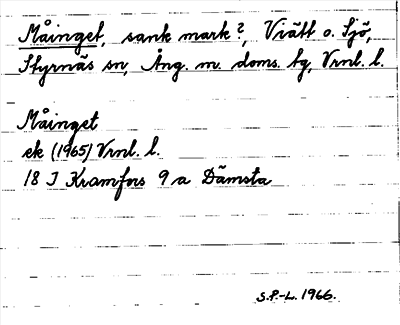 Måinget, sank mark?, Viätt o. Sjö,
Styrnäs sn, Ång. m. doms. tg, Vrnl. l.
Måinget
ek (1965) Vrnl. l.
18 I Kramfors 9 a Dämsta
S.P.-L. 1966.